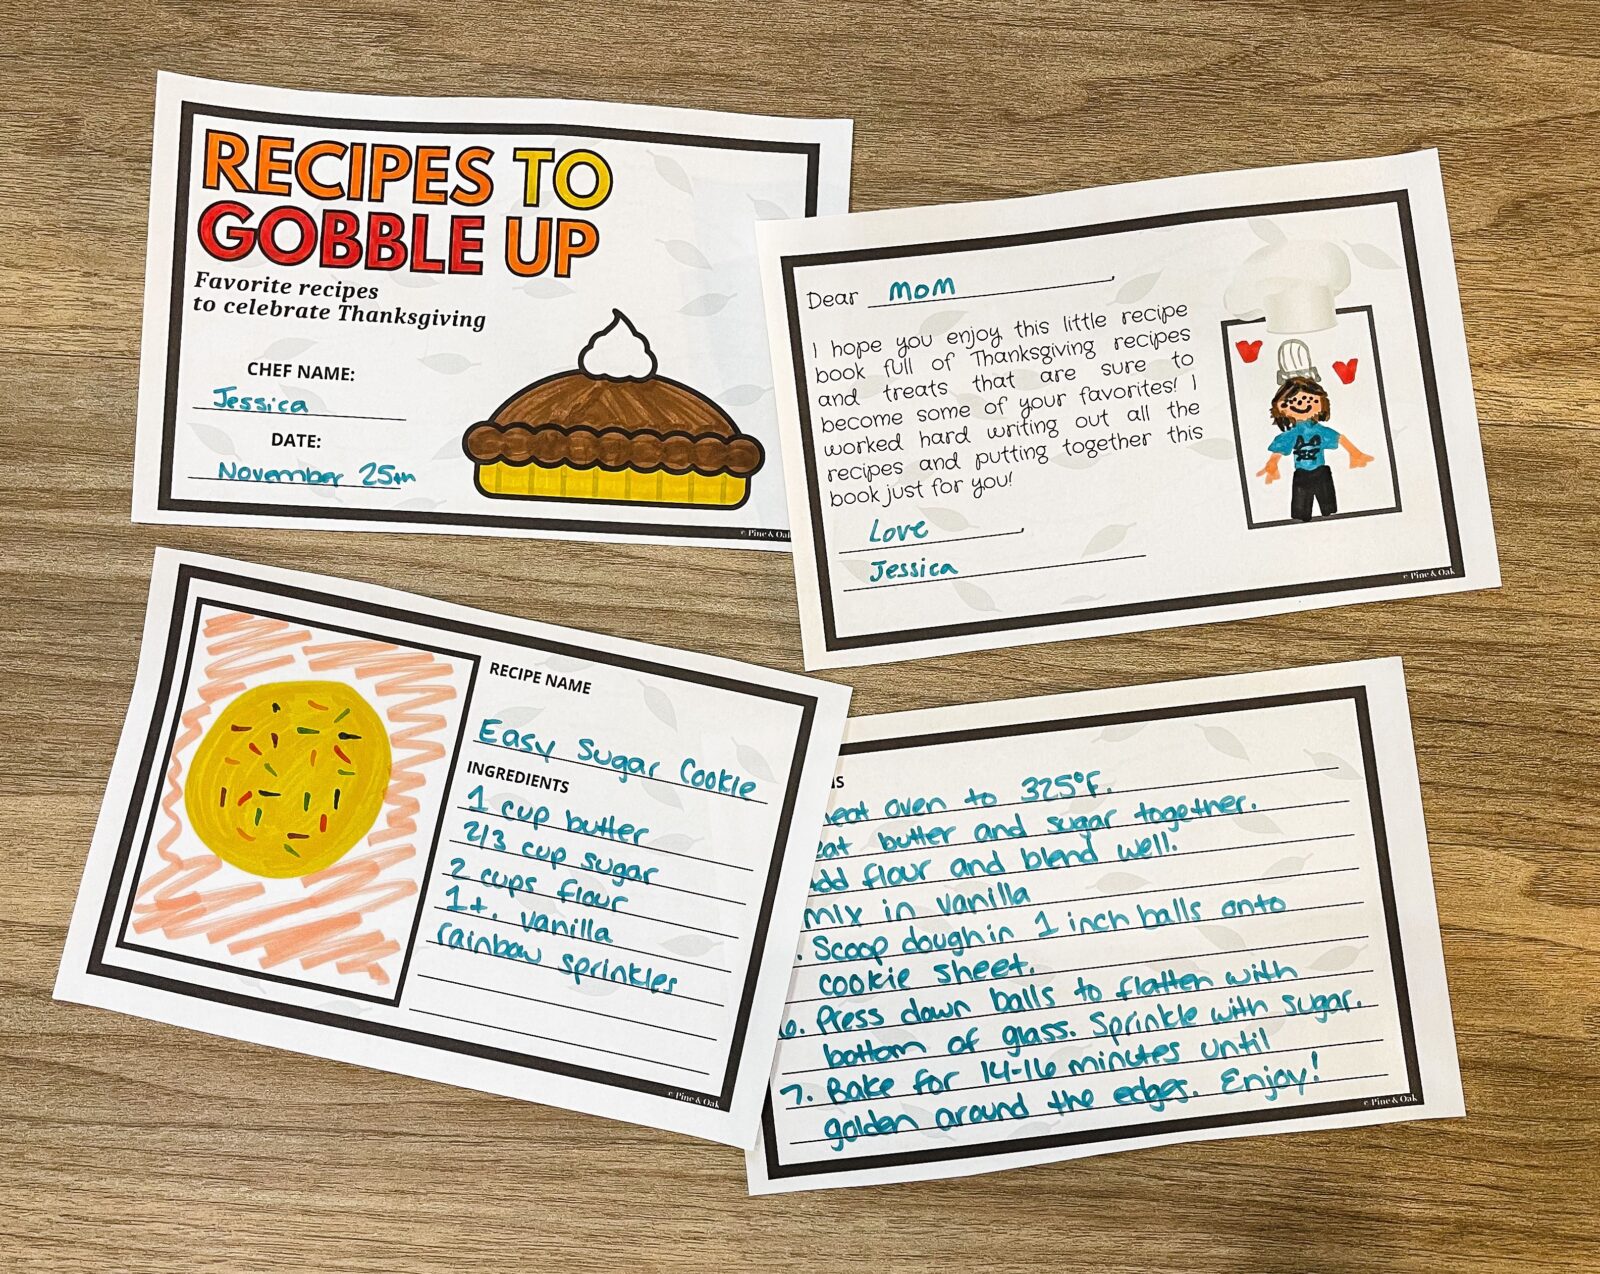 RECIPES TO
GOBBLE UP
Favorite recipes
to celebrate Thanksgiving
CHEF NAME:
Jessica
DATE:
November 25th
© Pine & Oak
Dear Mom,
I hope you enjoy this little recipe
book full of Thanksgiving recipes
and treats that are sure to
become some of your favorites! I
worked hard writing out all the
recipes and putting together this
book just for you!
Love,
Jessica
© Pine & Oak
RECIPE NAME
Easy Sugar Cookie
INGREDIENTS
1 cup butter
2/3 cup sugar
2 cups flour
1 t. vanilla
rainbow sprinkles
© Pine & Oak
NS
heat oven to 325°F.
eat butter and sugar together.
Add flour and blend well.
mix in vanilla
. Scoop dough in 1 inch balls onto
cookie sheet.
6. Press down balls to flatten with
bottom of glass. Sprinkle with sugar.
7. Bake for 14-16 minutes until
golden around the edges. Enjoy!
© Pine & Oak